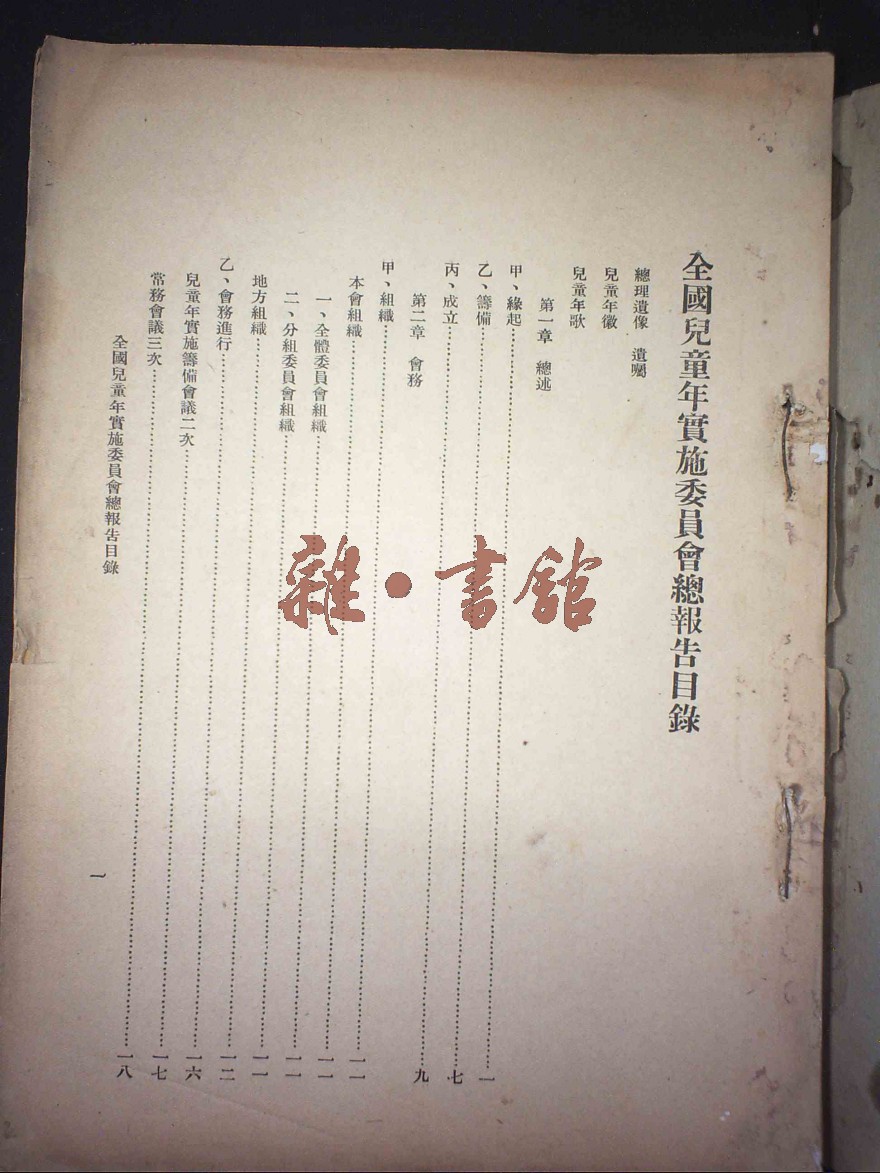 全國兒童年實施委員會總報告目錄
總理遺像 遺囑
兒童年徽
兒童年歌
第一章 總述
甲、緣起……一
乙、籌備……七
丙、成立……九
第二章 會務
甲、組織……一一
本會組織……一一
一、全體委員會組織……一一
二、分組委員會組織……一一
地方組織……一二
乙、會務進行……一六
兒童年實施籌備會議二次……一七
常務會議三次……一八
全國兒童年實施委員會總報告目錄
一
雜·書館